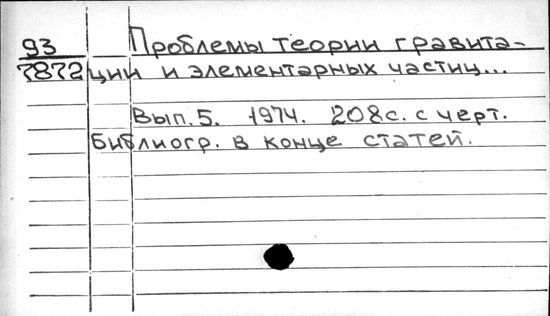 93 Проблемы теории гравита-
7872 ции и элементарных частиц...
Вып. 5. 1974. 208 с. с черт.
Библиогр. в конце статей.